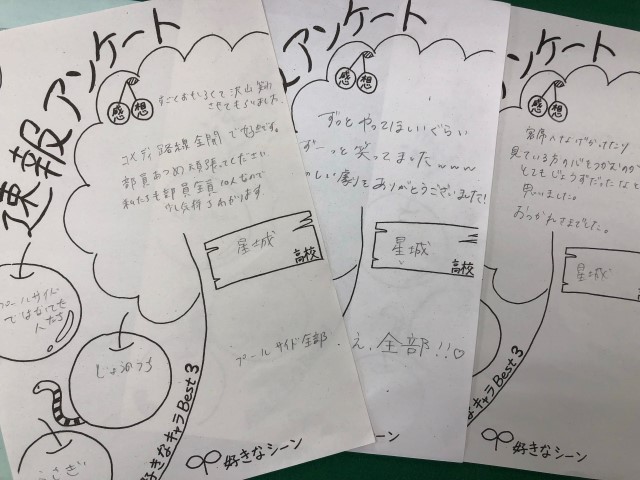 速報アンケート
感想
すごくおもしろくて沢山笑わ
させてもらいました。
コメディ路線全開で好きです。
部員あつめ頑張ってください
私たちも部員全員10人なので
少し気持ちわかります。
星城
高校
プールサイド
ではなしてた
人たち
じょうのうち
うさぎ
プールサイド全部
好きなキャラBest3
好きなシーン
アンケート
感想
ずっとやってほしいぐらい
ずーっと笑ってましたwww
のしい劇をありがとうございました!
星城
高校
え、全部!!♡
好きなキャラBest3
好きなシーン
ンケート
感想
客席へなげかけたり
見ている方の心もつかむのが
とてもじょうずだったなと
思いました。
おつかれさまでした。
星城
高校
好きなキャラBest3
好きなシーン